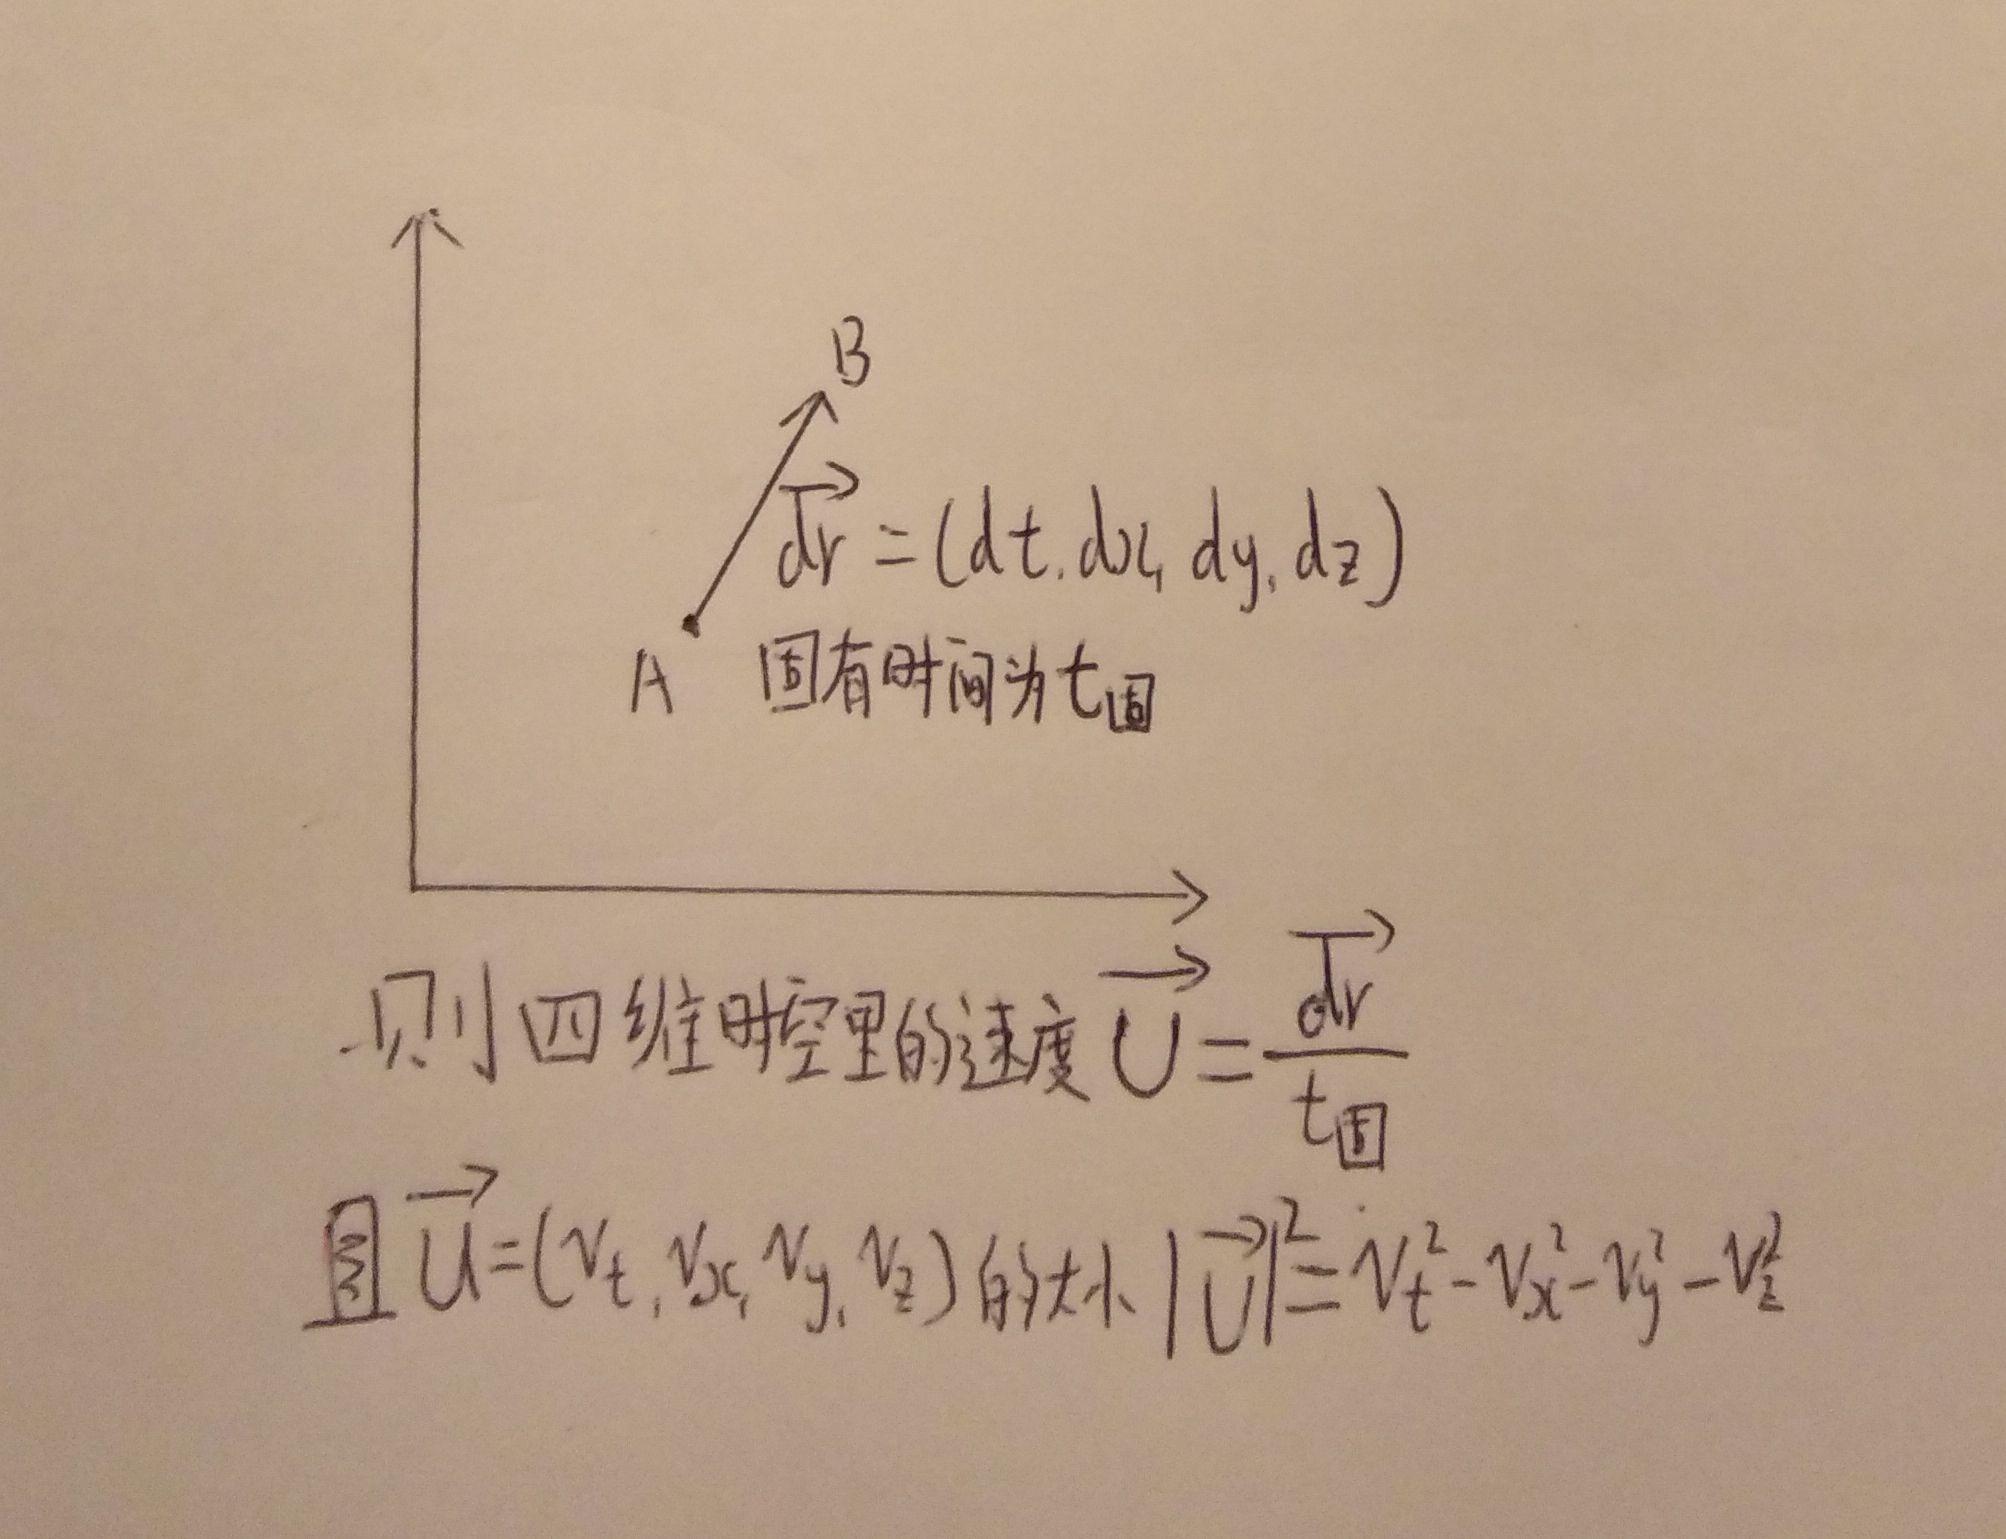 B
dr⃗ = (dt, dx, dy, dz)
A 固有时间为t固
则四维时空里的速度 U⃗ = dr⃗ / t固
且 U⃗ = (Vt, Vx, Vy, Vz) 的大小 |U⃗|² = Vt² - Vx² - Vy² - Vz²